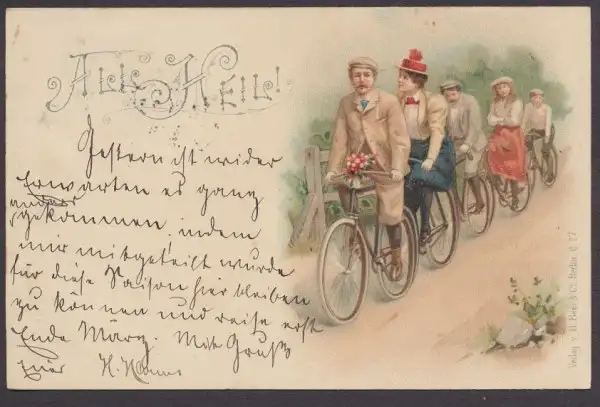 All Heil!
Gestern ist wider
Erwarten es ganz
anders
gekommen, indem
mir mitgeteilt wurde
für diese Saison hier bleiben
zu können und reise erst
Ende März. Mit Gruß
H.
Verlag v. H. & Co. Berlin C. 27